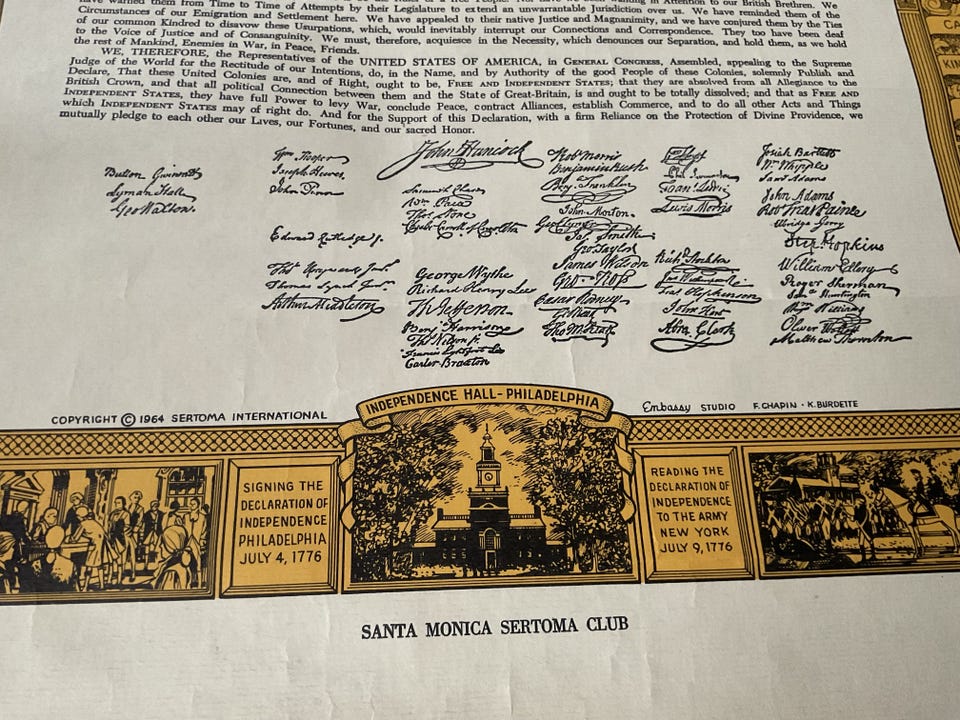 have warned them from Time to Time of Attempts by their Legislature to extend an unwarrantable Jurisdiction over us. We have reminded them of the
Circumstances of our Emigration and Settlement here. We have appealed to their native Justice and Magnanimity, and we have conjured them by the Ties
of our common Kindred to disavow these Usurpations, which, would inevitably interrupt our Connections and Correspondence. They too have been deaf
to the Voice of Justice and of Consanguinity. We must, therefore, acquiesce in the Necessity, which denounces our Separation, and hold them, as we hold
the rest of Mankind, Enemies in War, in Peace, Friends.
WE, THEREFORE, the Representatives of the UNITED STATES OF AMERICA, in GENERAL CONGRESS, Assembled, appealing to the Supreme
Judge of the World for the Rectitude of our Intentions, do, in the Name, and by Authority of the good People of these Colonies, solemnly Publish and
Declare, That these United Colonies are, and of Right, ought to be, FREE AND INDEPENDENT STATES; that they are absolved from all Allegiance to the
British Crown, and that all political Connection between them and the State of Great-Britain, is and ought to be totally dissolved; and that as FREE AND
INDEPENDENT STATES, they have full Power to levy War, conclude Peace, contract Alliances, establish Commerce, and to do all other Acts and Things
which INDEPENDENT STATES may of right do. And for the Support of this Declaration, with a firm Reliance on the Protection of Divine Providence, we
mutually pledge to each other our Lives, our Fortunes, and our sacred Honor.
Button Gwinnett
Lyman Hall
Geo Walton.
Wm Hooper
Joseph Hewes
John Penn
Edward Rutledge Jr.
Thos Heyward Junr.
Thomas Lynch Junr.
Arthur Middleton
John Hancock
Samuel Chase
Wm Paca
Thos Stone
Charles Carroll of Carrollton
George Wythe
Richard Henry Lee
Th Jefferson
Benj Harrison
Thos Nelson jr.
Francis Lightfoot Lee
Carter Braxton
Robt Morris
Benjamin Rush
Benj. Franklin
John Morton
Geo Clymer
Jas. Smith
Geo Taylor
James Wilson
Geo. Ross
Caesar Rodney
Tho M:Kean
Lewis Morris
Richd Stockton
Fras Hopkinson
John Hart
Abra Clark
Josiah Bartlett
Wm Whipple
Saml Adams
John Adams
Robt Treat Paine
Elbridge Gerry
Step. Hopkins
William Ellery
Roger Sherman
Saml Huntington
Wm Williams
Oliver Wolcott
Matthew Thornton
COPYRIGHT © 1964 SERTOMA INTERNATIONAL
INDEPENDENCE HALL-PHILADELPHIA
Embassy STUDIO F. CHAPIN · K. BURDETTE
SIGNING THE
DECLARATION OF
INDEPENDENCE
PHILADELPHIA
JULY 4, 1776
READING THE
DECLARATION OF
INDEPENDENCE
TO THE ARMY
NEW YORK
JULY 9, 1776
SANTA MONICA SERTOMA CLUB